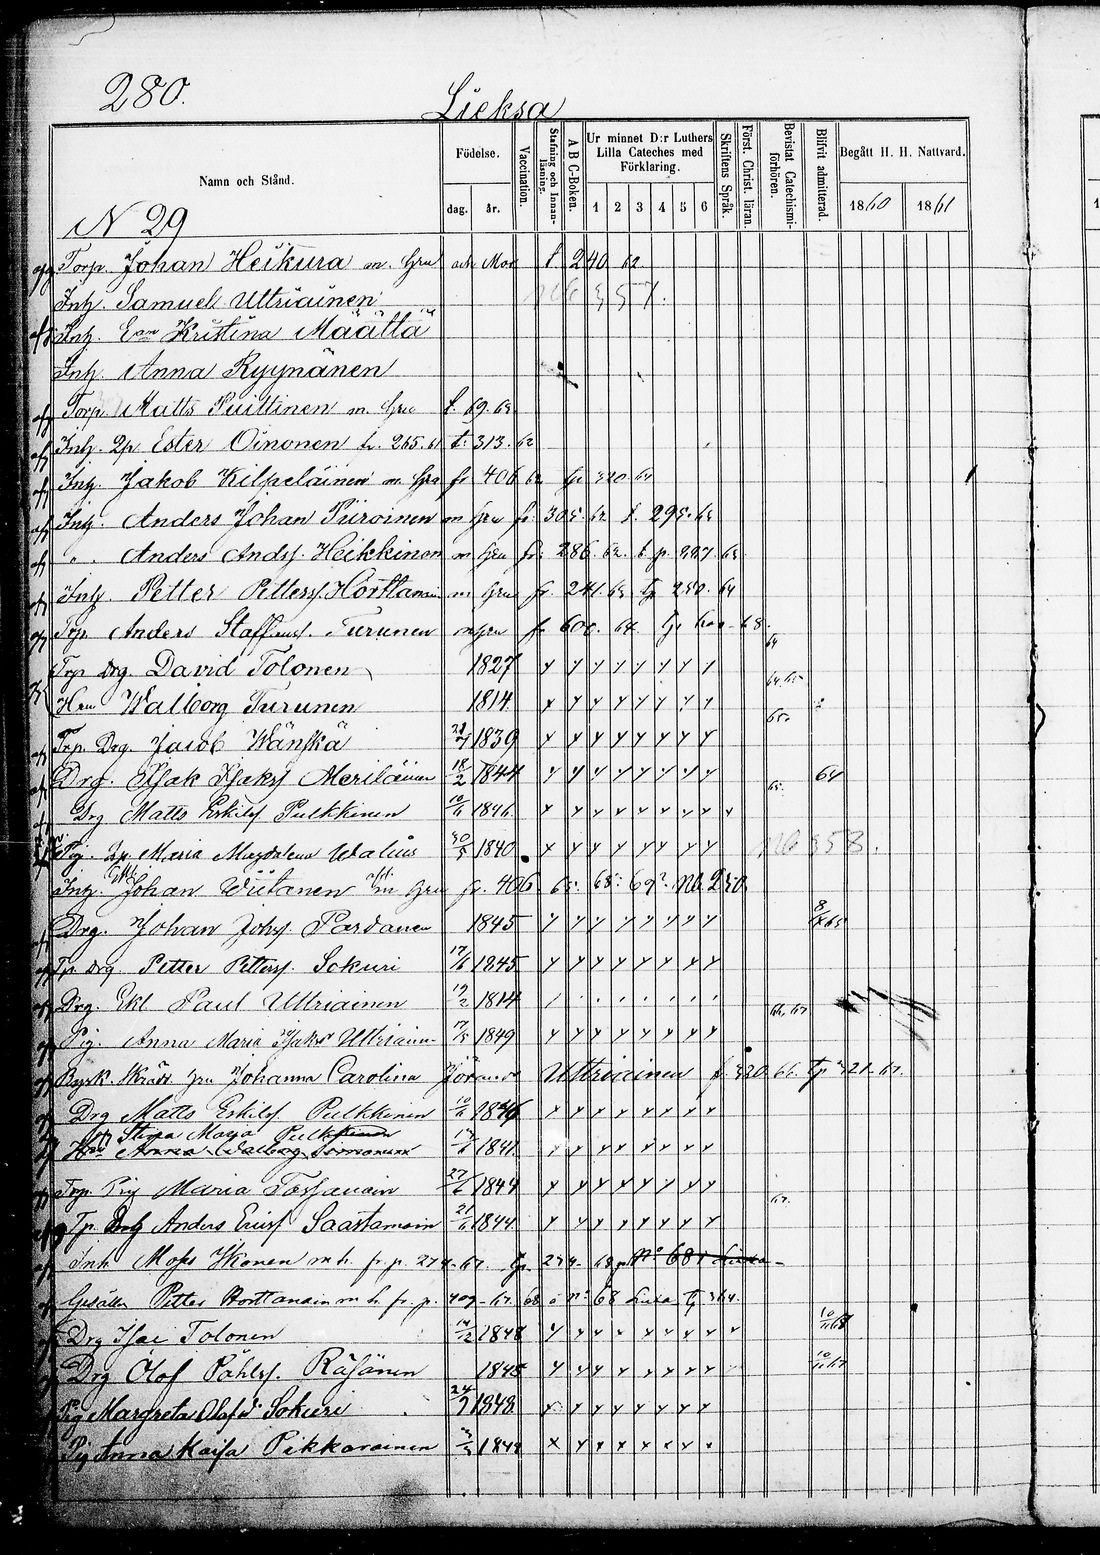 280.
Lieksa
Namn och Stånd.
Födelse.
dag. år.
Vaccination.
Stafning och Innanläsning.
A B C-Boken.
Ur minnet D:r Luthers Lilla Cateches med Förklaring.
1 2 3 4 5 6
Skriftens Språk.
Först. Christ. läran.
Bevistat Catechismiförhören.
Blifvit admitterad.
Begått H. H. Nattvard.
1860 1861
N 29
Torp. Johan Heikura m. Hru och Mor t 240 62
Inh. Samuel Uttriainen NB 357.
Inh. Enk. Kristina Määttä
Inh. Anna Ryynänen
Torp. Matts Puittinen m. Hru t. 69. 63
Inh. Ester Oinonen fr. 265. 61 t. 313. 62
Inh. Jakob Kilpeläinen m Hru fr 406 62 tp 320 64
Inh. Anders Johan Piiroinen m Hru fr. 305. 62 t. 295. 63
". Anders Ands. Heikkinen m Hru fr. 286. 62. t p. 227 63
Inh. Petter Petters. Horttanain m Hru fr. 241. 63 tp 250. 64
Trp Anders Staffans. Turunen m Hru fr 600. 64. 68
Trp Drg. David Tolonen 1827
Hru Walborg Turunen 1814
Trp. Drg. Jacob Wänskä 1839
Drg. Isak Isaks Meriläinen 18/2 1844 64
Drg Matts Eskils Pulkkinen 10/6 1846
Pig. Maria Magdalena Walius 30/5 1840 NB 353.
Inh. Johan Wiitanen Hru fr. 406 65. 68. 69? NB 230
Drg. Johan Johs. Pardanen 1845
Tp. Drg Petter Petters. Sokuri 17/6 1845
Drg. Ekl Paul Uttriainen 19/2 1814 66, 67
Pig. Anna Maria Isaks Uttriainen 17/5 1849
Bysk. Hru Johanna Carolina Uttriainen f 320 66. tp 321. 67.
Drg Matts Eskils Pulkkinen 10/6 1846
Stina Maja Pulkkinen
Hru Anna Walborg Simonen 1841
Trp. Pig Maria Torfanain 27/6 1844 67.
Tp. Drg Anders Erics Saastamoin 21/6 1844
Inh. Moses Ikonen m h. fr p. 274-67. tp. 274- 68 p No 68 i Lieksa
Gesällen Petter Horttanain m h. fr. p. 409-67. 68 å no 68 Lieksa tp 364.
Drg Isac Tolonen 14/12 1848 10/11 68
Drg Olof Påhls. Räsänen 1845 10/11 67
Pig Margreta Olofsd. Sokuri 24/7 1848
Pig Anna Kaisa Pikkarainen 1848